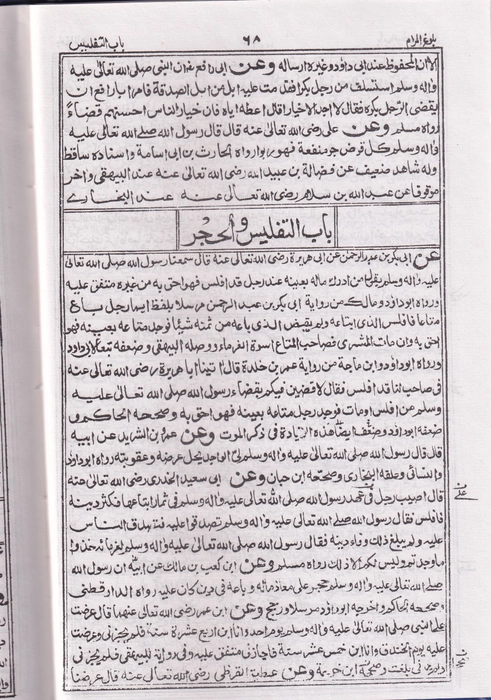 بلوغ المرام
٦٨
باب التفليس
الا ان المحفوظ عند ابى داود وغيره ارساله وعن ابى رافع ان النبى صلى الله تعالى عليه
واله وسلم استسلف من رجل بكرا فقدمت عليه ابل من ابل الصدقة فامر ابا رافع ان
يقضى الرجل بكره فقال لا اجد الا خيارا قال اعطه اياه فان خيار الناس احسنهم قضاء
رواه مسلم وعن على رضى الله تعالى عنه قال قال رسول الله صلى الله تعالى عليه
واله وسلم كل قرض جر منفعة فهو ربوا رواه الحارث بن ابى اسامة واسناده ساقط
وله شاهد ضعيف عن فضالة بن عبيد الله رضى الله تعالى عنه عند البيهقى واخر
موقوفا عن عبد الله بن سلام رضى الله تعالى عنه عند البخارى
باب التفليس والحجر
عن ابى بكر بن عبد الرحمن عن ابى هريرة رضى الله تعالى عنه قال سمعنا رسول الله صلى الله تعالى
عليه واله وسلم يقول من ادرك ماله بعينه عند رجل قد افلس فهو احق به من غيره متفق عليه
ورواه ابو داود ومالك من رواية ابى بكر بن عبد الرحمن مرسلا بلفظ ايما رجل باع
متاعا فافلس الذى ابتاعه ولم يقبض الذى باعه من ثمنه شيئا فوجد متاعه بعينه فهو
احق به وان مات المشترى فصاحب المتاع اسوة الغرماء ووصله البيهقى وضعفه تبعا لابى داود
ورواه ابو داود وابن ماجة من رواية عمر بن خلدة قال اتينا ابا هريرة رضى الله تعالى عنه
فى صاحب لنا قد افلس فقال لاقضين فيكم بقضاء رسول الله صلى الله تعالى عليه
وسلم من افلس او مات فوجد رجل متاعه بعينه فهو احق به وصححه الحاكم و
ضعفه ابو داود وضعف ايضا هذه الزيادة فى ذكر الموت وعن عمرو بن الشريد عن ابيه
قال قال رسول الله صلى الله تعالى عليه واله وسلم لى الواجد يحل عرضه وعقوبته رواه ابو داود
والنسائى وعلقه البخارى وصححه ابن حبان وعن ابى سعيد الخدرى رضى الله تعالى عنه
قال اصيب رجل فى عهد رسول الله صلى الله تعالى عليه واله وسلم فى ثمار ابتاعها فكثر دينه
فافلس فقال رسول الله صلى الله تعالى عليه واله وسلم تصدقوا عليه فتصدق الناس
عليه ولم يبلغ ذلك وفاء دينه فقال رسول الله صلى الله تعالى عليه واله وسلم لغرمائه خذوا
ما وجدتم وليس لكم الا ذلك رواه مسلم وعن ابن كعب بن مالك عن ابيه ان رسول الله
صلى الله تعالى عليه واله وسلم حجر على معاذ ماله وباعه فى دين كان عليه رواه الدارقطنى
وصححه الحاكم واخرجه ابو داود مرسلا ورجح وعن ابن عمر رضى الله تعالى عنهما قال عرضت
على النبى صلى الله تعالى عليه واله وسلم يوم احد وانا ابن اربع عشرة سنة فلم يجزنى وعرضت
عليه يوم الخندق وانا ابن خمس عشرة سنة فاجازنى متفق عليه وفى رواية للبيهقى فلم يجزنى
ولم يرنى بلغت وصححه ابن خزيمة وعن عطية القرظى رضى الله تعالى عنه قال عرضنا